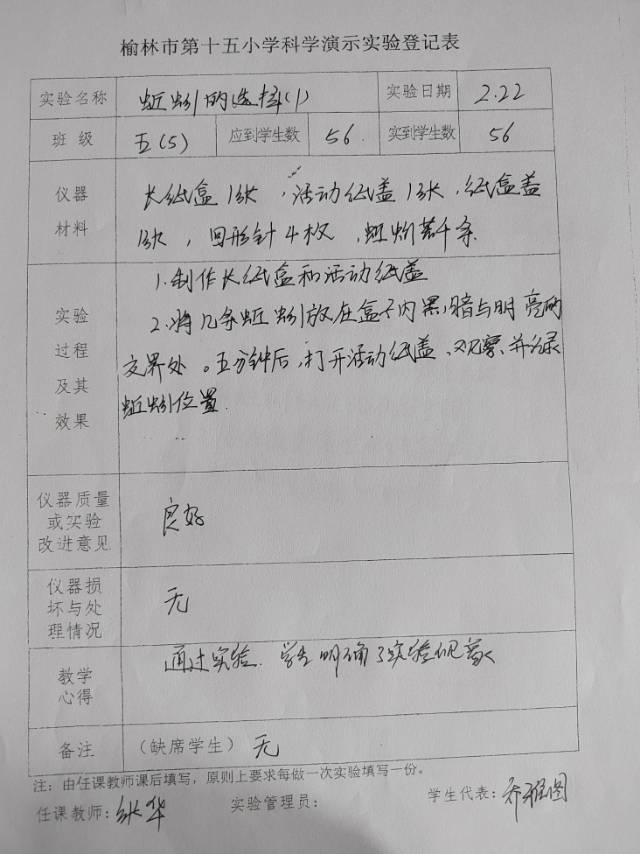 榆林市第十五小学科学演示实验登记表
实验名称 蚯蚓的选择(1) 实验日期 2.22
班 级 五(5) 应到学生数 56 实到学生数 56
仪器
材料
长纸盒1张,活动纸盖1张,纸盒盖
1张,回形针4枚,蚯蚓若干条
实验
过程
及其
效果
1.制作长纸盒和活动纸盖
2.将几条蚯蚓放在盒子内黑暗与明亮的
交界处。五分钟后,打开活动纸盖、观察、并记录
蚯蚓位置.
仪器质量
或实验
改进意见
良好
仪器损
坏与处
理情况
无
教学
心得
通过实验.学生明确了实验现象
备注 (缺席学生) 无
注:由任课教师课后填写,原则上要求每做一次实验填写一份。
任课教师: 华 实验管理员: 学生代表: 乔